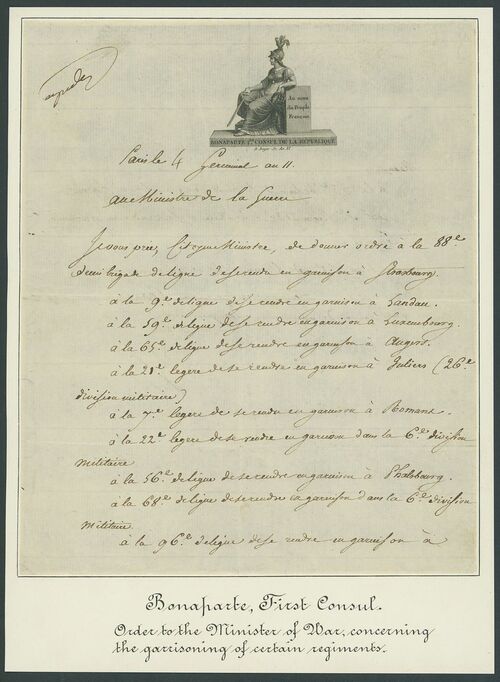 Au nom
du Peuple
Français
BONAPARTE 1er CONSUL DE LA RÉPUBLIQUE
Paris le 4 Germinal an 11
au Ministre de la Guerre
Je vous prie, Citoyen Ministre, de donner ordre à la 88e
demi brigade de ligne de se rendre en garnison à Strasbourg.
à la 9e de ligne de se rendre en garnison à Landau.
à la 59e de ligne de se rendre en garnison à Luxembourg.
à la 65e de ligne de se rendre en garnison à Angers.
à la 21e legere de se rendre en garnison à Juliers (26e
division militaire)
à la 7e legere de se rendre en garnison à Romans.
à la 22e legere de se rendre en garnison dans la 6e division
militaire
à la 56e de ligne de se rendre en garnison à Phalsbourg.
à la 68e de ligne de se rendre en garnison dans la 6e division
militaire.
à la 96e de ligne de se rendre en garnison à
Bonaparte, First Consul.
Order to the Minister of War, concerning
the garrisoning of certain regiments.